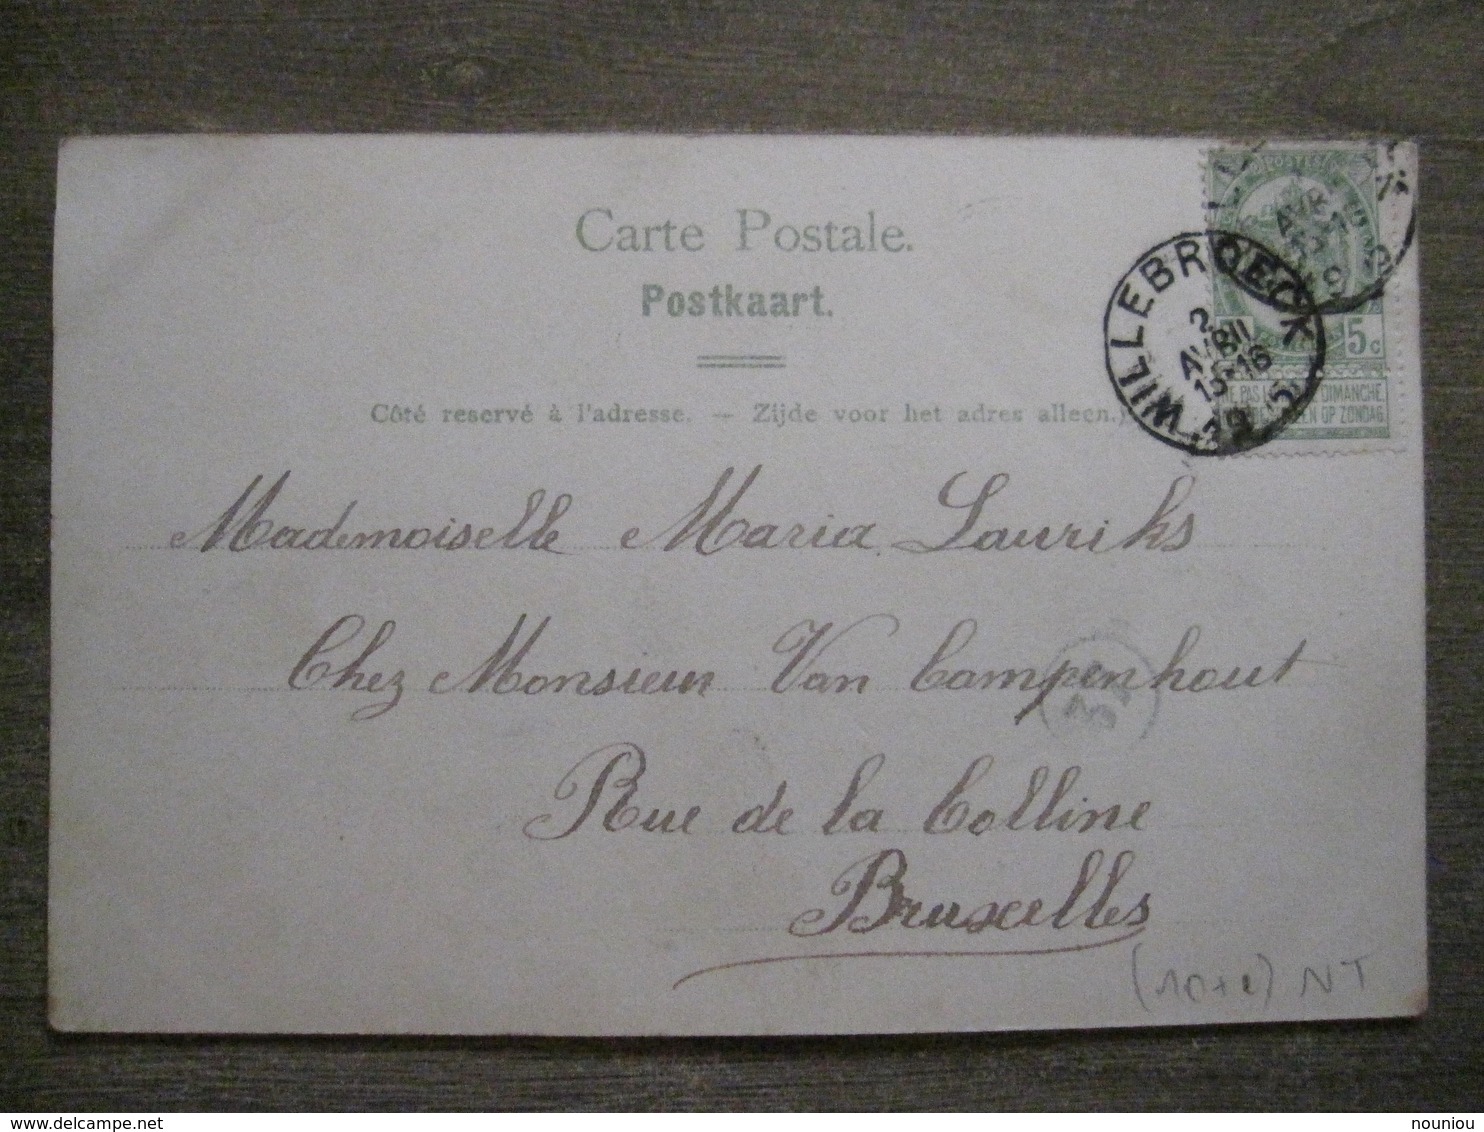 Carte Postale.
Postkaart.
Côté reservé à l'adresse. — Zijde voor het adres alleen.
POSTES
5c
DIMANCHE
OP ZONDAG
WILLEBROECK
2
AVRIL
15-16
Mademoiselle Maria Lauriks
Chez Monsieur Van Campenhout
Rue de la Colline
Bruxelles
NT
delcampe.net
nouniou